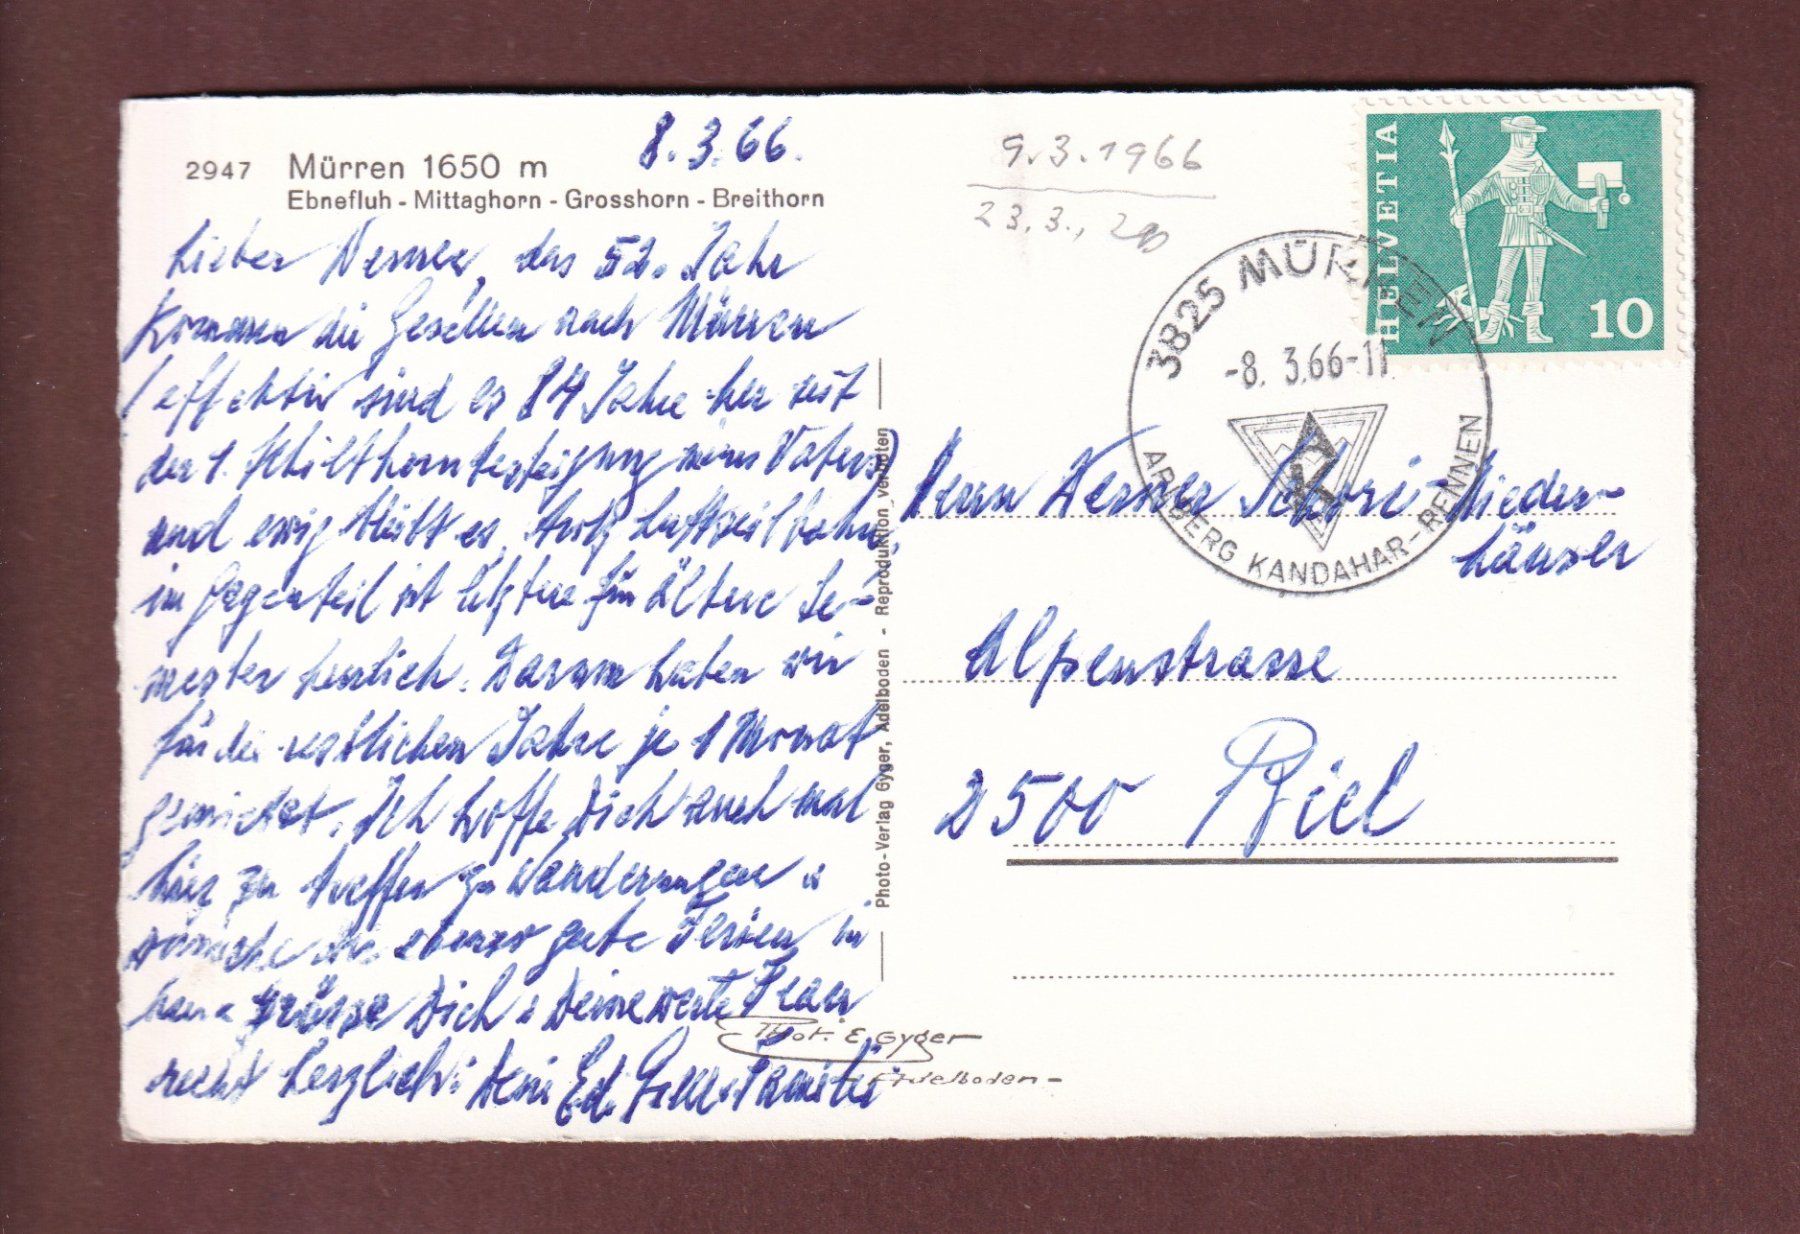 8.3.66.
2947 Mürren 1650 m
Ebnefluh - Mittaghorn - Grosshorn - Breithorn
Lieber Werner, das 52. Jahr
kommen die Gesellen nach Mürren
(effektiv sind es 84 Jahre her seit
der 1. Schilthornbesteigung meines Vaters)
und ewig bleibt es, trotz Luftseilbahn,
im Gegenteil ist letztere für ältere Se-
mester herrlich. Darum haben wir
für die restlichen Jahre je 1 Monat
gemietet. Ich hoffe Dich auch mal
hier zu treffen zu Wanderungen &
wünsche Dir ebenso gute Ferien, in
grüsse Dich & Deine werte Frau
recht herzlich: Dein Ed.
Phot. E. Gyger
- Adelboden -
Photo-Verlag Gyger, Adelboden - Reproduktion verboten
9.3.1966
23.3.,
3825 MÜRREN
-8. 3.66-11
ARLBERG KANDAHAR-RENNEN
HELVETIA
10
Herrn Werner Schori-Nieder-
häuser
Alpenstrasse
2500 Biel